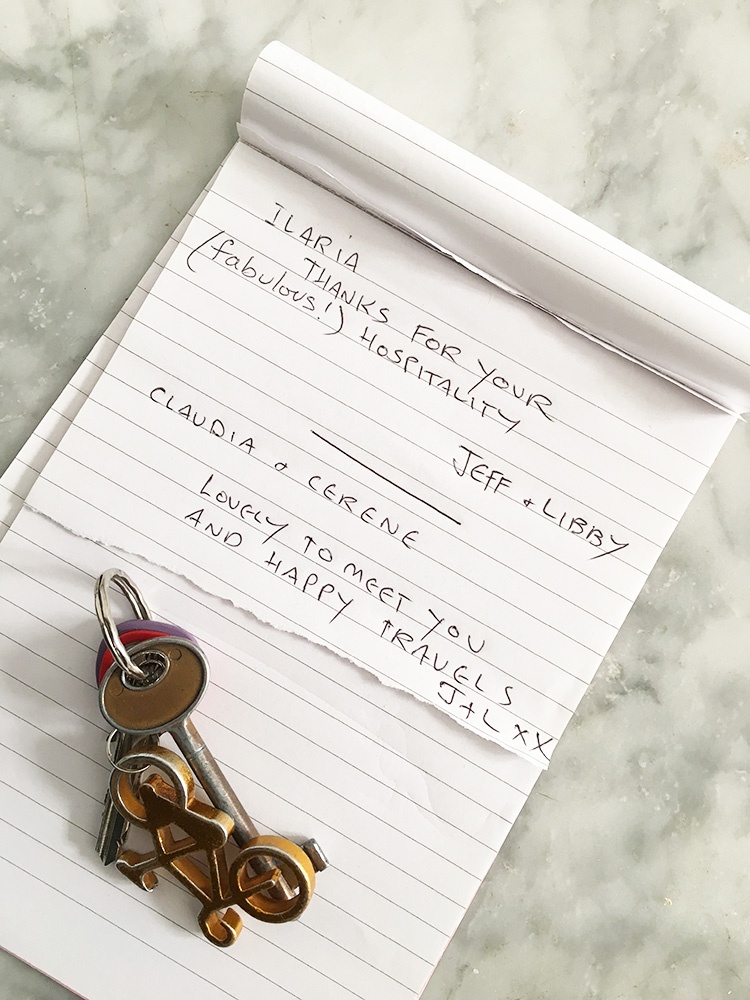 ILARIA
THANKS FOR YOUR
(fabulous!) HOSPITALITY
JEFF & LIBBY
CLAUDIA & CERENE
LOVELY TO MEET YOU
AND HAPPY TRAVELS
J+L XX